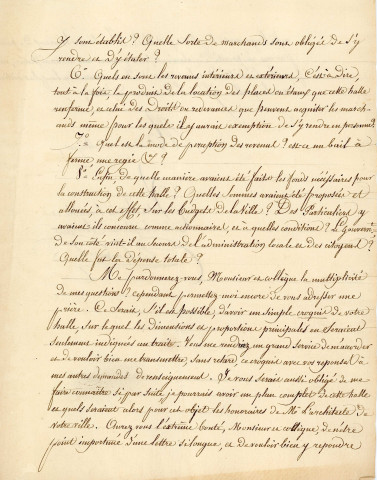 y sont établis ? Quelle sorte de marchands sont obligés de s'y
rendre et d'y étaler ?
6°. Quels en sont les revenus intérieurs et extérieurs, c'est-à-dire,
tout à la fois, le produit de la location des places ou étaux que cette halle
renferme, et celui des droits ou redevances que peuvent acquiter les march-
ands même pour lesquels il y aurait exemption de s'y rendre en personne ?
7°. Quel est le mode de perception des revenus ? est-ce un bail à
ferme, une régie &c ?
8°. Enfin, de quelle manière avaient été faits les fonds nécessaires pour
la construction de cette halle ? Quelles sommes avaient été proposées et
allouées, à cet effet, sur les Budgets de la Ville ? Des Particuliers y
avaient-ils concouru comme actionnaires, et à quelles conditions ? Le Gouvern.t
de son côté vint-il au secours de l'administration locale et des citoyens ?
Quelle fut la dépense totale ?
Me pardonnerez-vous, Monsieur et collègue la multiplicité
de mes questions ? cependant permettez-moi encore de vous adresser une
prière. Ce serait, s'il est possible, d'avoir un simple croquis de votre
halle, sur lequel les dimensions et proportions principales en seraient
seulement indiquées au trait. Vous me rendrez un grand service de m'accorder
et de vouloir bien me transmettre, sans retard ce croquis avec vos réponses à
mes autres demandes de renseignement. Je vous serais aussi obligé de me
faire connaître si par suite je pourrais avoir un plan complet de cette halle
et quels seraient alors pour cet objet les honoraires de Mr. l'architecte de
votre ville. Ayez vous l'extrême bonté, Monsieur et collègue, de n'être
point importuné d'une lettre si longue, et de vouloir bien y répondre